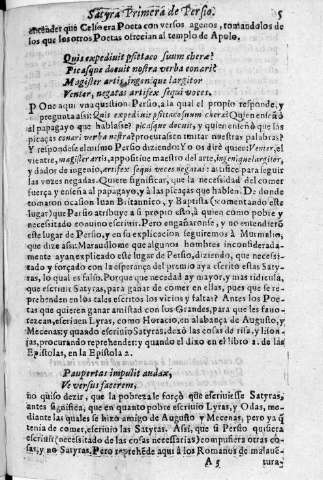 Satyra Primera de Persio. 5
entender que Celso era Poeta con versos agenos, tomandolos de
los que los otros Poetas ofrecian al templo de Apolo.
Quis expediuit psitaco suum chære?
Picasque docuit nostra verba conari?
Magister artis, ingenique largitor
Venter, negatas artifex sequi voces.
PONE aqui vna question Persio, a la qual el propio responde, y
pregunta assi: Quis expediuit psitaco suum chære? Quien enseñò
al papagayo que hablasse? picasque docuit, y quien enseñò que las
picaças conari nostra verba? procurassen imitar nuestras palabras?
Y respondese el mismo Persio diziendo: Yo os dirè quien: Venter, el
vientre, magister artis, appositiuè maestro del arte, ingenique largitor,
y dador de ingenio, artifex sequi voces negatas: artifice para seguir
las vozes negadas. Quiere significar, que la necessidad del comer
fuerça y enseña al papagayo, y à las picaças que hablen. De donde
tomaron ocasion Iuan Britannico, y Baptista (comentando este
lugar) que Persio atribuye a si propio esto, à quien como pobre y
necessitado conuino escriuir. Pero engañaronse, y no entendierõ
este lugar de Persio, y en su explicacion seguiremos à Murmelio,
que dize assi: Marauillome que algunos hombres inconsideradamente
ayan explicado este lugar de Persio, diziendo, que necessitado
y forçado con la esperança del premio aya escrito estas Satyras,
lo qual es falso. Porque que necedad ay mayor, y mas ridicula,
que escriuir Satyras, para ganar de comer en ellas, pues que se reprehenden
en los tales escritos los vicios y faltas? Antes los Poetas
que quieren ganar amistad con los Grandes, para que les fauorezcan,
escriuen Lyras, como Horacio, en alabança de Augusto, y
Mecenas: y quando escriuio Satyras, dexò las cosas de risa, y lisonjas,
procurando reprehender: y quando el dixo en el libro 2. de las
Epistolas, en la Epistola 2.
Paupertas impulit audax,
Ve versus facerem,
no quiso dezir, que la pobreza le forçò que escriuiesse Satyras,
antes significa, que en quanto pobre escriuio Lyras, y Odas, mediante
las quales se hizo amigo de Augusto y Mecenas, pero ya q̃
tenia de comer, escriuio las Satyras. Assi, que si Persio quisiera
escriuir (necessitado de las cosas necessarias) compusiera otras cosas,
y no Satyras. Pero reprehẽde aqui à los Romanos de mala
A 5 tura-